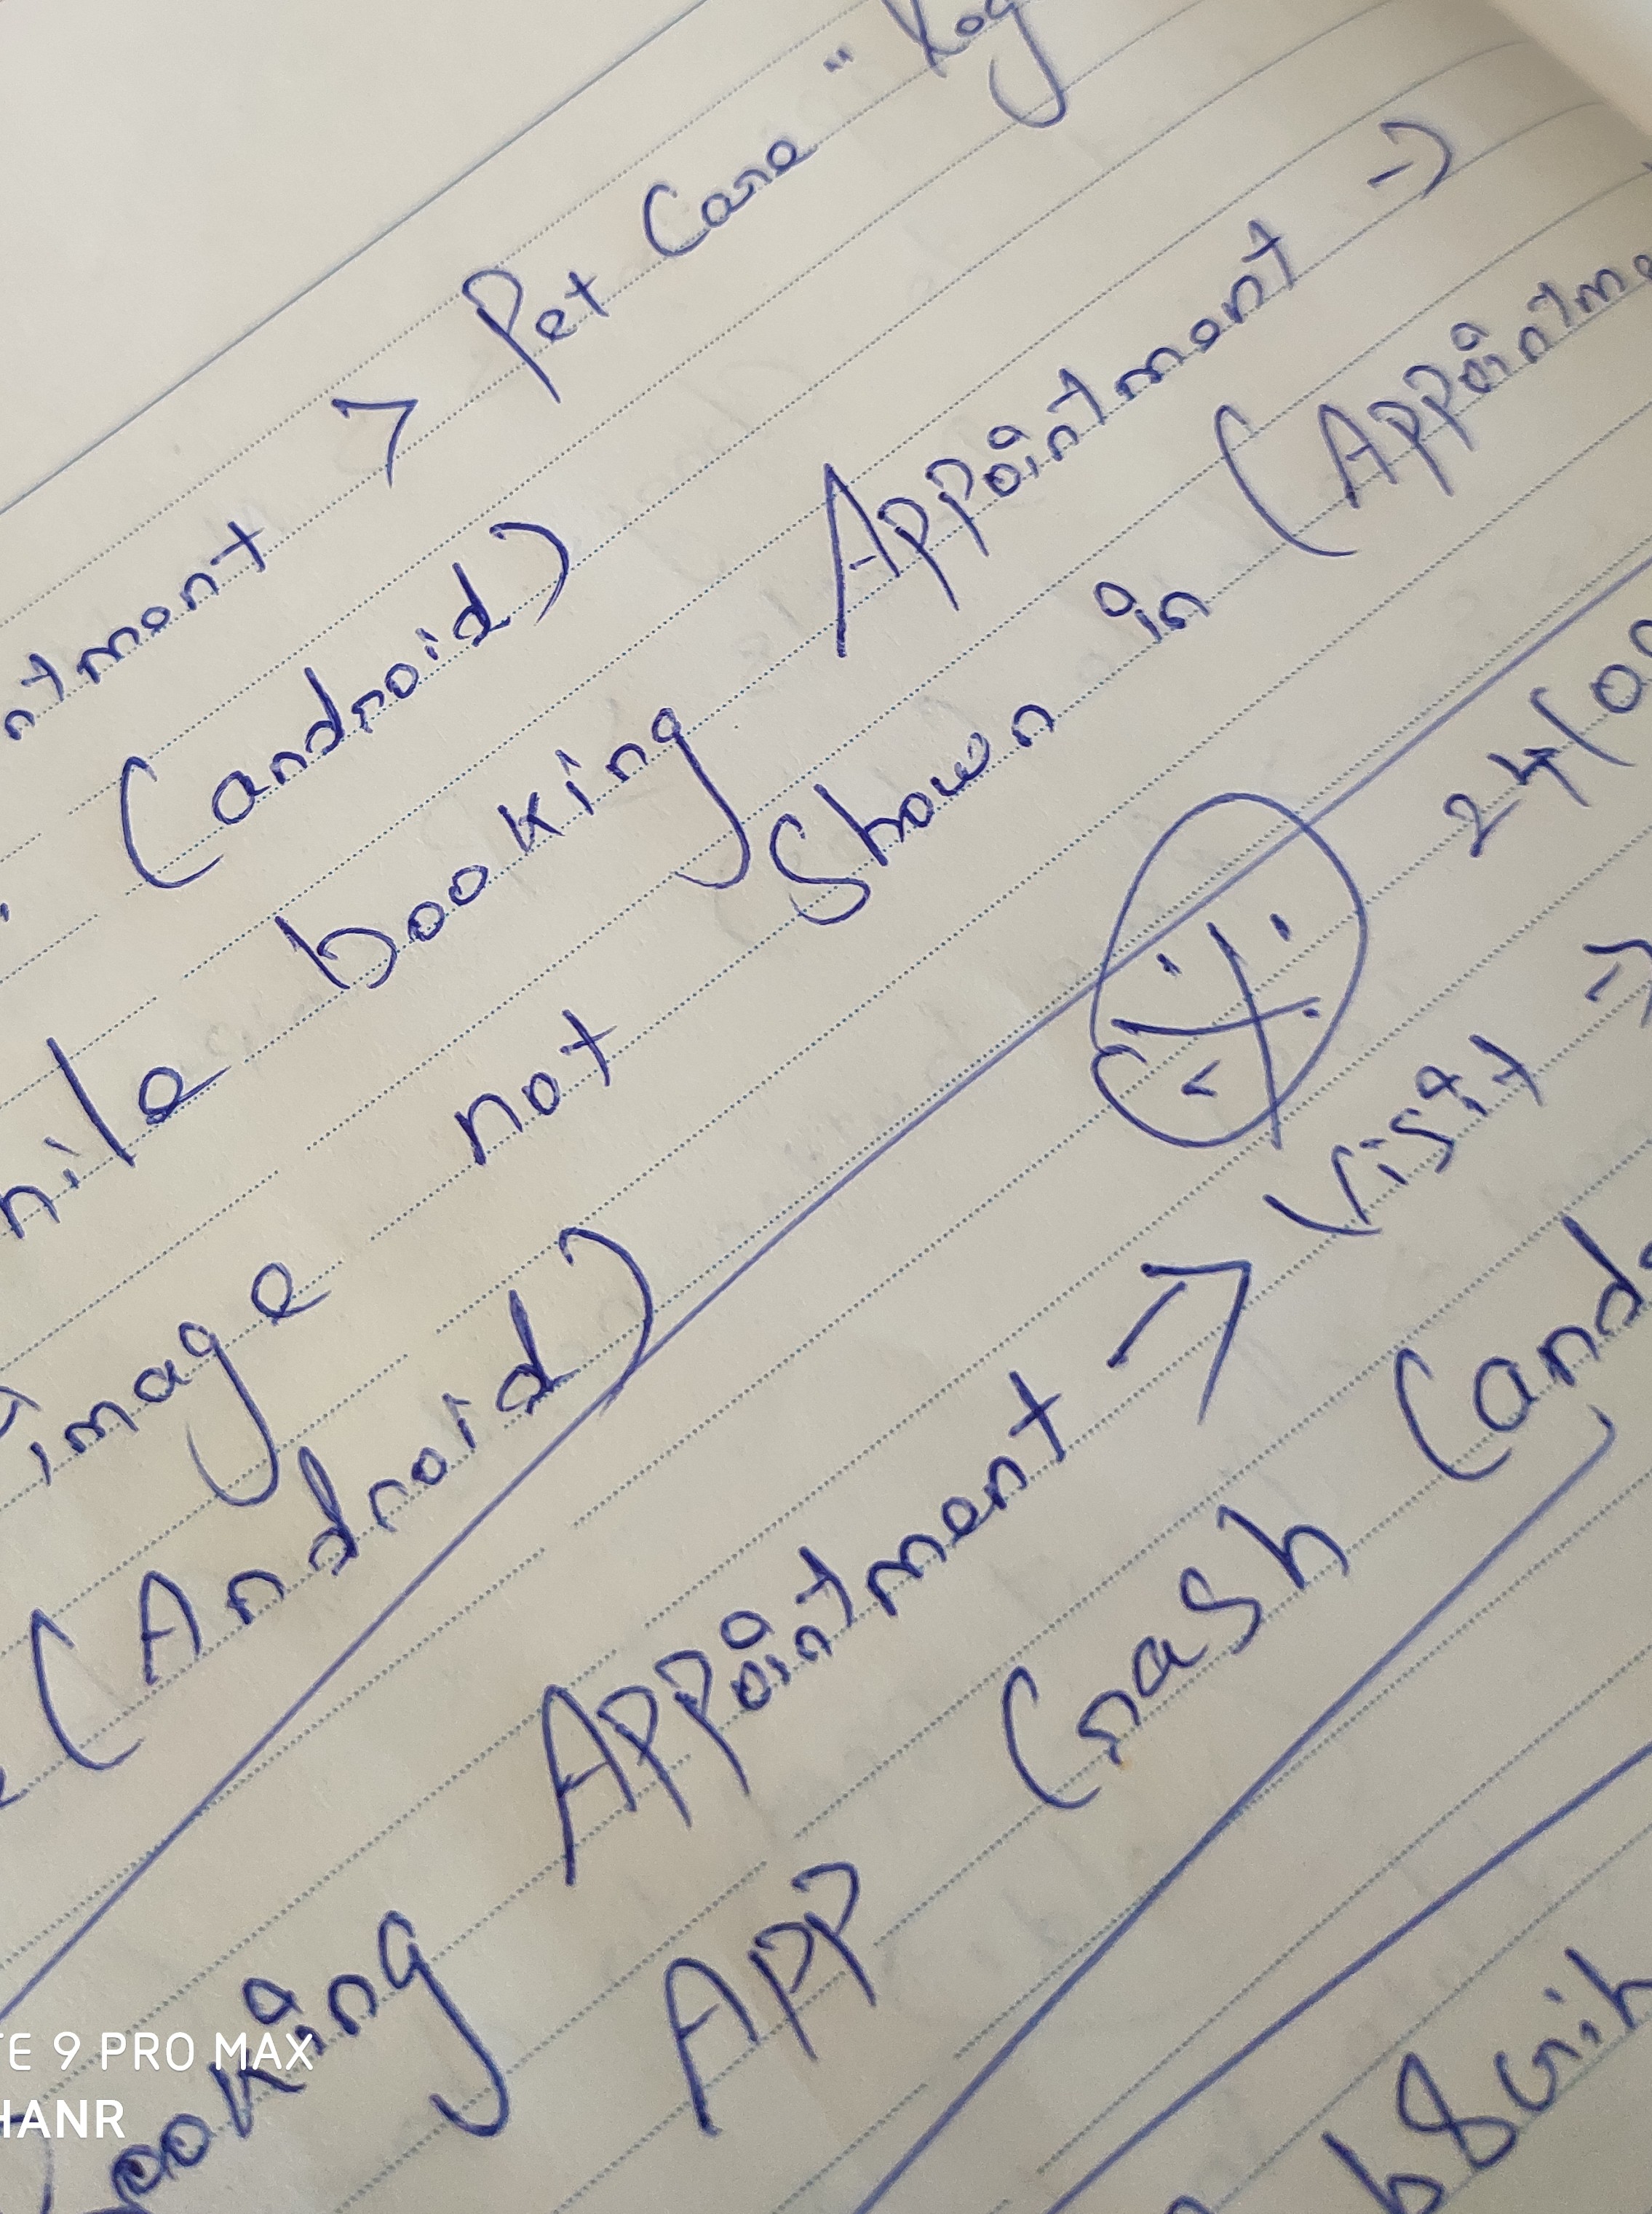 ntment > Pet Care "
(android)
hile booking Appointment ->
image not Shown in (Appointme
(Android)
24/0
Booking Appointment -> Visit ->
App Crash (and
TE 9 PRO MAX
HANR